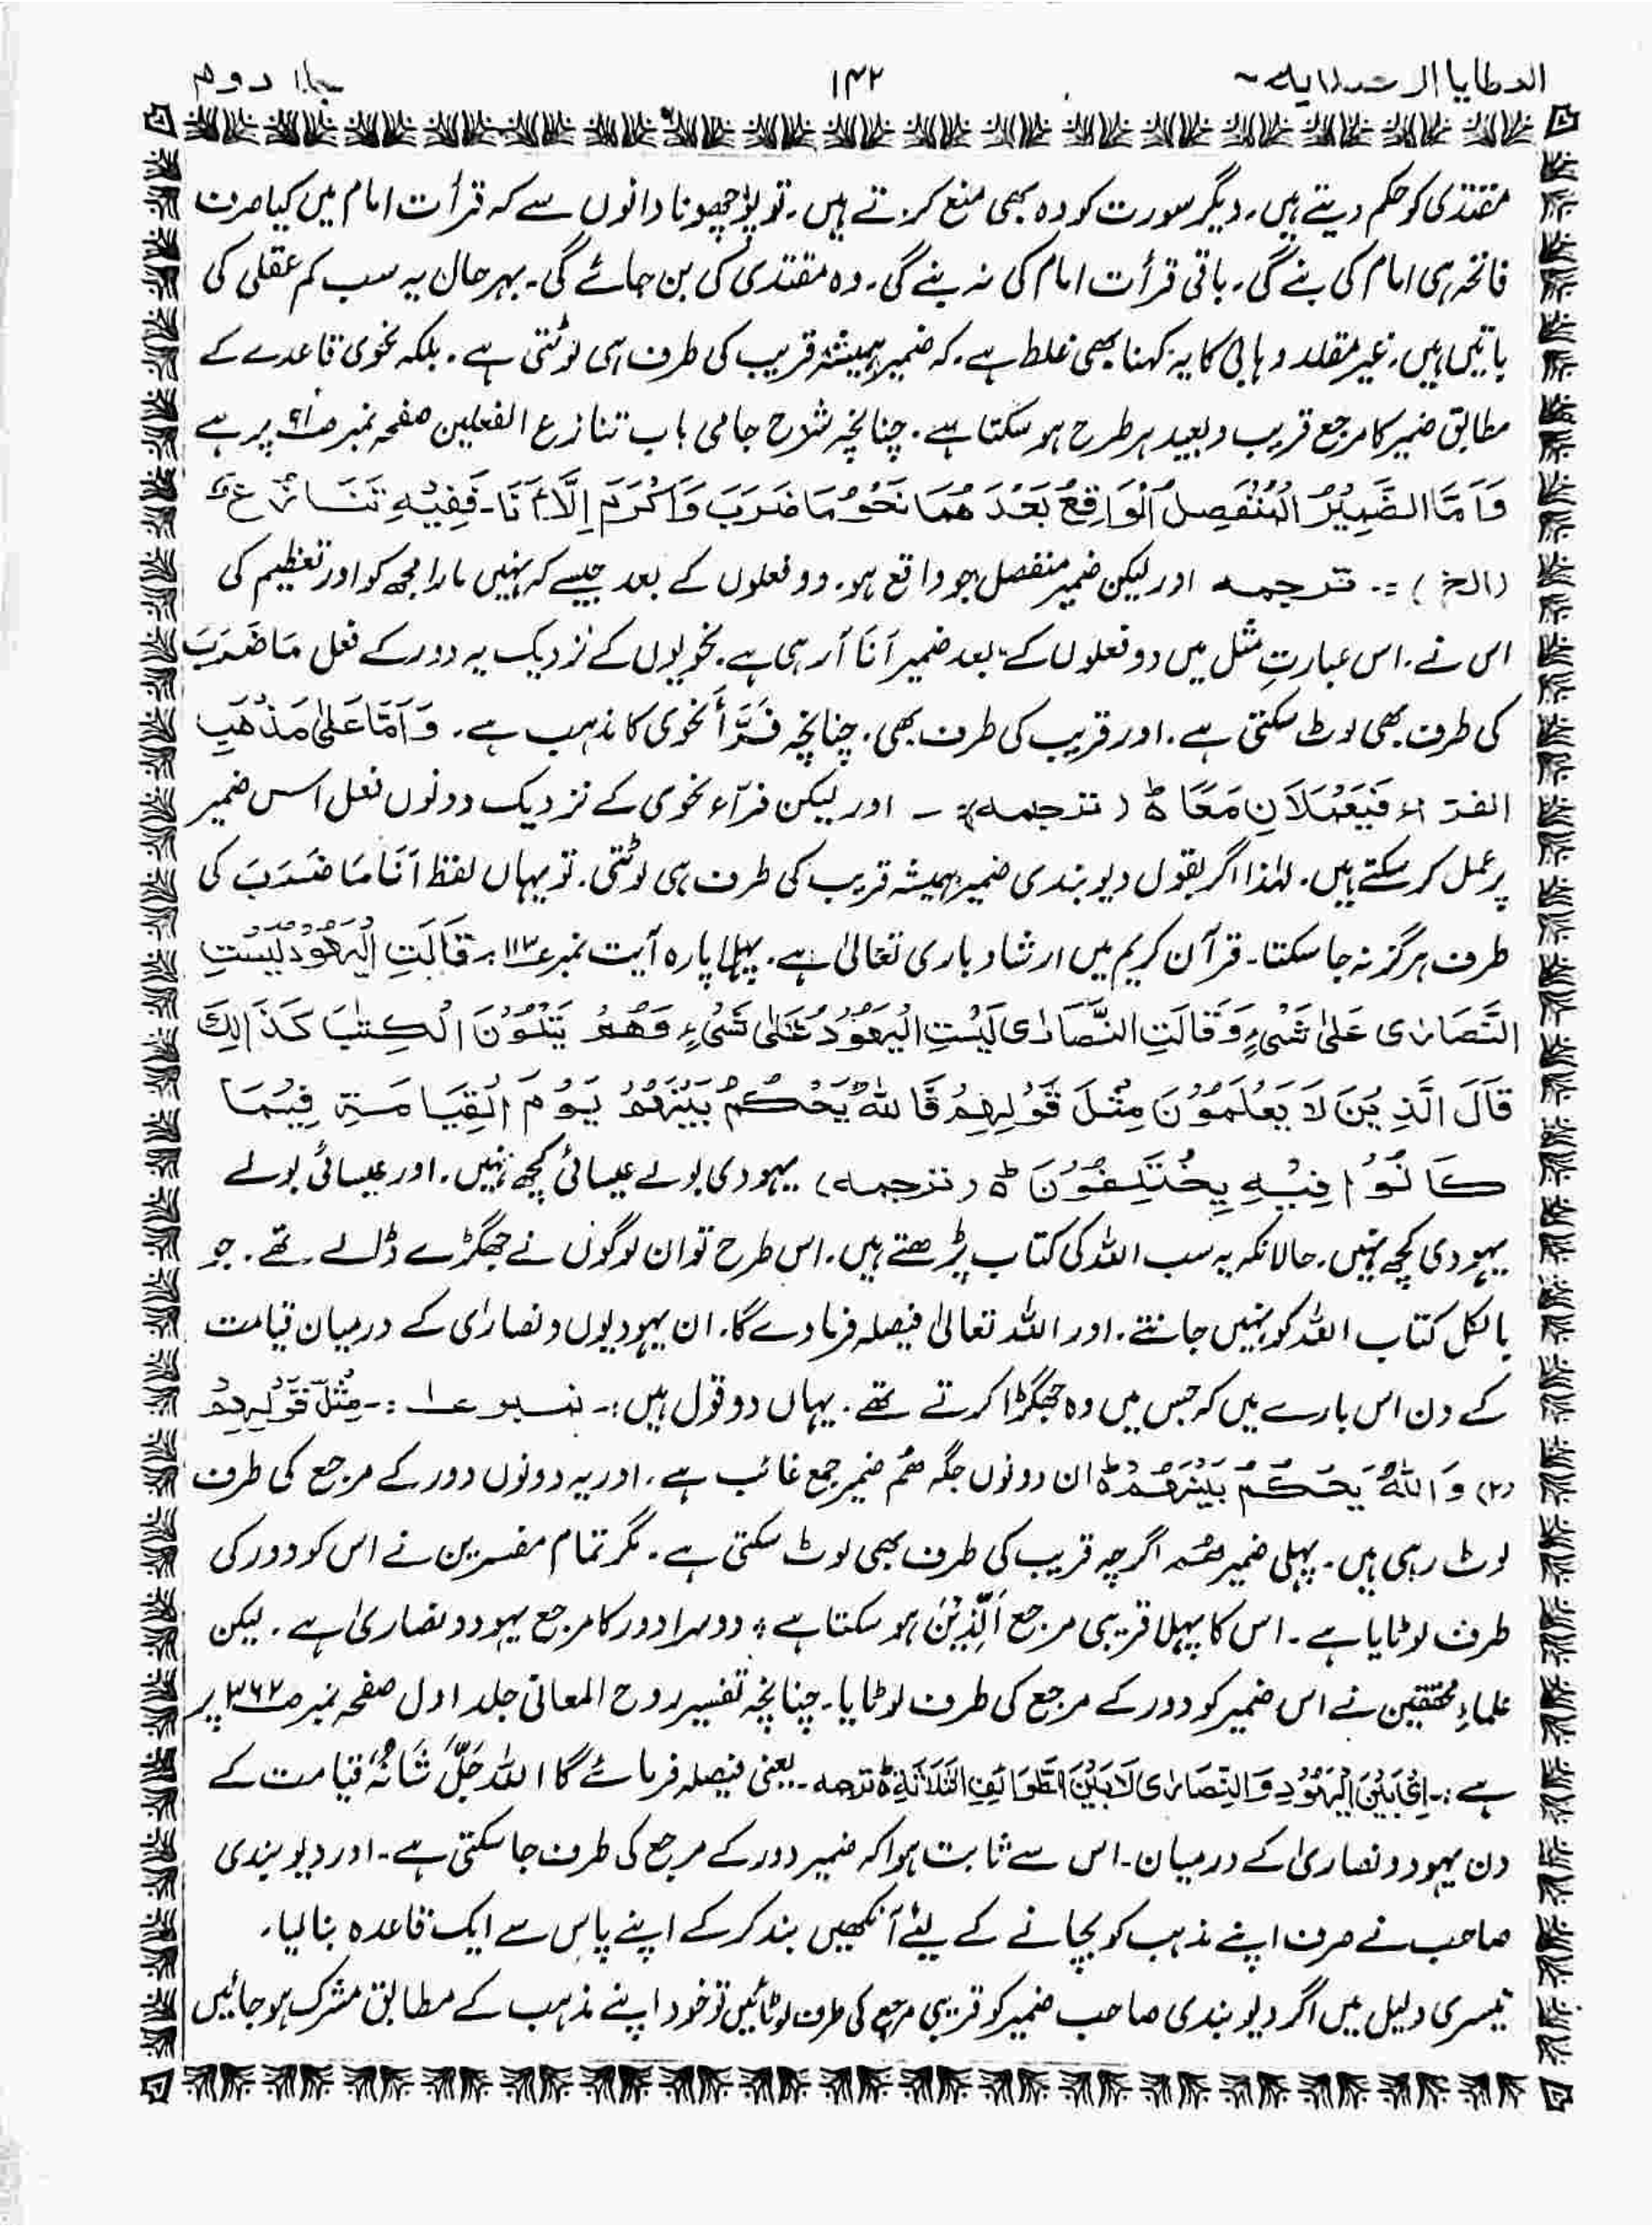 العطایا الاحمدیہ ۱۴۲ جلد دوم
مقتدی کو حکم دیتے ہیں۔ دیگر سورت کو وہ بھی منع کرتے ہیں۔ تو پوچھو نادانوں سے کہ قرأت امام میں کیا صرف
فاتحہ ہی امام کی بنے گی۔ باقی قرأت امام کی نہ بنے گی۔ وہ مقتدی کی بن جائے گی۔ بہرحال یہ سب کم عقلی کی
باتیں ہیں۔ غیر مقلد وہابی کا یہ کہنا بھی غلط ہے۔ کہ ضمیر ہمیشہ قریب کی طرف ہی لوٹتی ہے۔ بلکہ نحوی قاعدے کے
مطابق ضمیر کا مرجع قریب و بعید ہر طرح ہو سکتا ہے۔ چنانچہ شرح جامی باب تنازع الفعلین صفحہ نمبر صـ۶۱ پر ہے
وَاَمَّا الضَّمِیْرُ الْمُنْفَصِلُ الْوَاقِعُ بَعْدَ ھُمَا نَحْوُ مَا ضَرَبَ وَاَکْرَمَ اِلَّا اَنَا۔ فَفِیْہِ تَنَازُعٌ
(الخ) :۔ ترجمہ اور لیکن ضمیر منفصل جو واقع ہو۔ دو فعلوں کے بعد جیسے کہ نہیں مارا مجھ کو اور تعظیم کی
اس نے۔ اس عبارتِ مثل میں دو فعلوں کے بعد ضمیر اَنَا آ رہی ہے۔ نحویوں کے نزدیک یہ دور کے فعل مَا ضَرَبَ
کی طرف بھی لوٹ سکتی ہے۔ اور قریب کی طرف بھی۔ چنانچہ فَرَّأ نحوی کا مذہب ہے۔ وَاَمَّا عَلیٰ مَذْھَبِ
الفرّاء فَیَعْمَلَانِ مَعًا ط (ترجمہ) :۔ اور لیکن فرّاء نحوی کے نزدیک دونوں فعل اسس ضمیر
پر عمل کر سکتے ہیں۔ لہٰذا اگر بقول دیوبندی ضمیر ہمیشہ قریب کی طرف ہی لوٹتی۔ تو یہاں لفظ اَنَا مَا ضَرَبَ کی
طرف ہرگز نہ جا سکتا۔ قرآن کریم میں ارشاد باری تعالیٰ ہے۔ پہلا پارہ آیت نمبر ۱۱۳:۔ قَالَتِ الْیَھُوْدُ لَیْسَتِ
النَّصَارٰی عَلیٰ شَیْءٍ وَّقَالَتِ النَّصَارٰی لَیْسَتِ الْیَھُوْدُ عَلیٰ شَیْءٍ وَھُمْ یَتْلُوْنَ الْکِتٰبَ کَذَالِکَ
قَالَ الَّذِیْنَ لَا یَعْلَمُوْنَ مِثْلَ قَوْلِھِمْ فَاللہُ یَحْکُمُ بَیْنَھُمْ یَوْمَ الْقِیَامَۃِ فِیْمَا
کَانُوْا فِیْہِ یَخْتَلِفُوْنَ ط (ترجمہ) یہودی بولے عیسائی کچھ نہیں۔ اور عیسائی بولے
یہودی کچھ نہیں۔ حالانکہ یہ سب اللہ کی کتاب پڑھتے ہیں۔ اس طرح تو ان لوگوں نے جھگڑے ڈالے تھے۔ جو
بالکل کتاب اللہ کو نہیں جانتے۔ اور اللہ تعالیٰ فیصلہ فرما دے گا۔ ان یہودیوں و نصاریٰ کے درمیان قیامت
کے دن اس بارے میں کہ جس میں وہ جھگڑا کرتے تھے۔ یہاں دو قول ہیں :۔ نمبر ۱ :۔ مِثْلَ قَوْلِھِمْ
(۲) وَاللہُ یَحْکُمُ بَیْنَھُمْ ط ان دونوں جگہ ھُم ضمیر جمع غائب ہے۔ اور یہ دونوں دور کے مرجع کی طرف
لوٹ رہی ہیں۔ پہلی ضمیر ھم اگرچہ قریب کی طرف بھی لوٹ سکتی ہے۔ مگر تمام مفسرین نے اس کو دور کی
طرف لوٹایا ہے۔ اس کا پہلا قریبی مرجع اَلَّذِیْنَ ہو سکتا ہے، دوسرا دور کا مرجع یہود و نصاریٰ ہے۔ لیکن
علماءِ محققین نے اس ضمیر کو دور کے مرجع کی طرف لوٹایا۔ چنانچہ تفسیر روح المعانی جلد اول صفحہ نمبر صـ۳۶۲ پر
ہے :۔ اِیْ بَیْنَ الْیَھُوْدِ وَالنَّصَارٰی لَا بَیْنَ الطَّوَائِفِ الثَّلَاثَۃِ ط ترجمہ۔ یعنی فیصلہ فرمائے گا اللہ جَلَّ شَانُہٗ قیامت کے
دن یہود و نصاریٰ کے درمیان۔ اس سے ثابت ہوا کہ ضمیر دور کے مرجع کی طرف جا سکتی ہے۔ اور دیوبندی
صاحب نے صرف اپنے مذہب کو بچانے کے لیئے آنکھیں بند کر کے اپنے پاس سے ایک قاعدہ بنا لیا۔
تیسری دلیل میں اگر دیوبندی صاحب ضمیر کو قریبی مرجع کی طرف لوٹائیں تو خود اپنے مذہب کے مطابق مشرک ہو جائیں